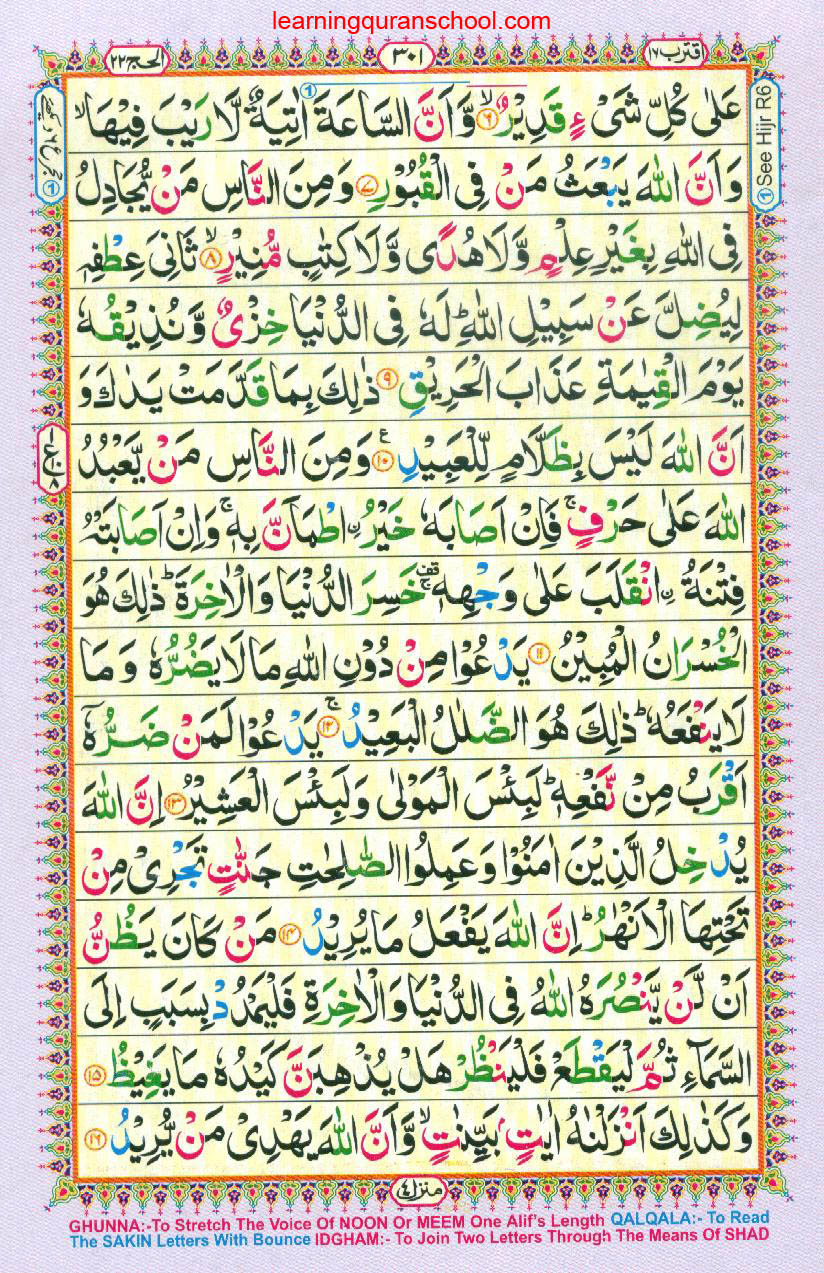 learningquranschool.com
الحج ٢٢
٣٠١
اقترب ١٧
عَلٰى كُلِّ شَىْءٍ قَدِيْرٌ ۙ‏﴿۶﴾ وَّاَنَّ السَّاعَةَ اٰتِيَةٌ لَّا رَيْبَ فِيْهَا ۙ
وَاَنَّ اللّٰهَ يَبْعَثُ مَنْ فِى الْقُبُوْرِ ﴿۷﴾ وَمِنَ النَّاسِ مَنْ يُّجَادِلُ
فِى اللّٰهِ بِغَيْرِ عِلْمٍ وَّلَا هُدًى وَّلَا كِتٰبٍ مُّنِيْرٍ ۙ﴿۸﴾ ثَانِىَ عِطْفِهٖ
لِيُضِلَّ عَنْ سَبِيْلِ اللّٰهِ ؕ لَهٗ فِى الدُّنْيَا خِزْىٌ وَّنُذِيْقُهٗ
يَوْمَ الْقِيٰمَةِ عَذَابَ الْحَرِيْقِ ﴿۹﴾ ذٰلِكَ بِمَا قَدَّمَتْ يَدٰكَ وَ
اَنَّ اللّٰهَ لَيْسَ بِظَلَّامٍ لِّلْعَبِيْدِ ﴿۱۰﴾ وَمِنَ النَّاسِ مَنْ يَّعْبُدُ
اللّٰهَ عَلٰى حَرْفٍ ۚ فَاِنْ اَصَابَهٗ خَيْرُ ۨاطْمَاَنَّ بِهٖ ۚ وَاِنْ اَصَابَتْهُ
فِتْنَةُ ۨانْقَلَبَ عَلٰى وَجْهِهٖ ۚ خَسِرَ الدُّنْيَا وَالْاٰخِرَةَ ؕ ذٰلِكَ هُوَ
الْخُسْرَانُ الْمُبِيْنُ ﴿۱۱﴾ يَدْعُوْا مِنْ دُوْنِ اللّٰهِ مَا لَا يَضُرُّهٗ وَمَا
لَا يَنْفَعُهٗ ؕ ذٰلِكَ هُوَ الضَّلٰلُ الْبَعِيْدُ ۚ﴿۱۲﴾ يَدْعُوْا لَمَنْ ضَرُّهٗۤ
اَقْرَبُ مِنْ نَّفْعِهٖ ؕ لَبِئْسَ الْمَوْلٰى وَلَبِئْسَ الْعَشِيْرُ ﴿۱۳﴾ اِنَّ اللّٰهَ
يُدْخِلُ الَّذِيْنَ اٰمَنُوْا وَعَمِلُوا الصّٰلِحٰتِ جَنّٰتٍ تَجْرِىْ مِنْ
تَحْتِهَا الْاَنْهٰرُ ؕ اِنَّ اللّٰهَ يَفْعَلُ مَا يُرِيْدُ ﴿۱۴﴾ مَنْ كَانَ يَظُنُّ
اَنْ لَّنْ يَّنْصُرَهُ اللّٰهُ فِى الدُّنْيَا وَالْاٰخِرَةِ فَلْيَمْدُدْ بِسَبَبٍ اِلَى
السَّمَآءِ ثُمَّ لْيَقْطَعْ فَلْيَنْظُرْ هَلْ يُذْهِبَنَّ كَيْدُهٗ مَا يَغِيْظُ ﴿۱۵﴾
وَكَذٰلِكَ اَنْزَلْنٰهُ اٰيٰتٍۢ بَيِّنٰتٍ ۙ وَّاَنَّ اللّٰهَ يَهْدِىْ مَنْ يُّرِيْدُ ﴿۱۶﴾
١ See Hijr R6
منزل ٤
GHUNNA:-To Stretch The Voice Of NOON Or MEEM One Alif's Length QALQALA:- To Read
The SAKIN Letters With Bounce IDGHAM:- To Join Two Letters Through The Means Of SHAD